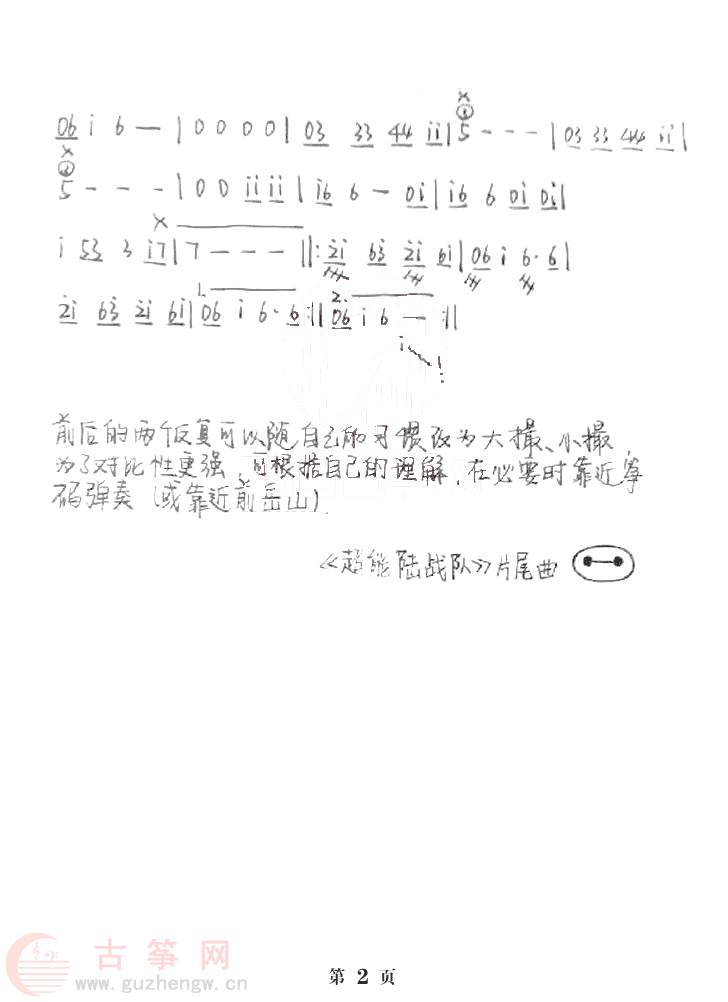 06 i 6 — | 0 0 0 0 | 03 33 44 ii | 5 - - - | 03 33 44 ii |
5 - - - | 0 0 ii ii | i6 6 - 0i | i6 6 0i 0i |
i 53 3 i7 | 7 - - - ||: 2i 63 2i 6i | 06 i 6· 6 |
1. 2.
2i 63 2i 6i | 06 i 6· 6 :|| 06 i 6 — :||
前后的两个反复可以随自己的习惯改为大撮、小撮,
为了对比性更强,可根据自己的理解,在必要时靠近筝
码弹奏(或靠近前岳山).
《超能陆战队》片尾曲
古筝网
www.guzhengw.cn
第 2 页